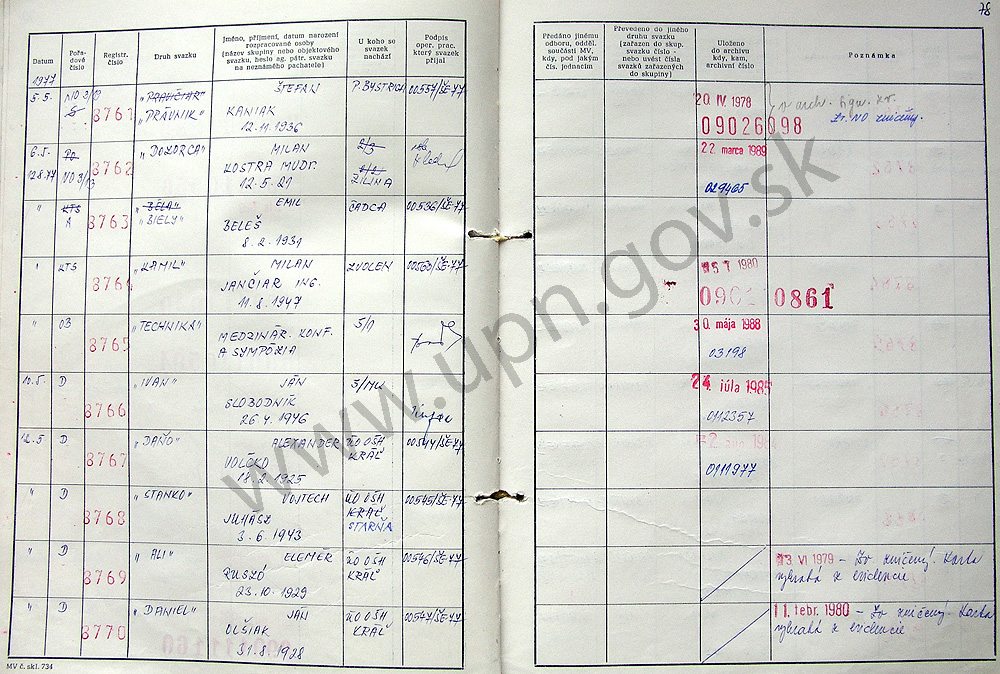 78
Datum
Pořadové číslo
Registr. číslo
Druh svazku
Jméno, příjmení, datum narození rozpracované osoby (název skupiny nebo objektového svazku, heslo ag. pátr. svazku na neznámého pachatele)
U koho se svazek nachází
Podpis oper. prac. který svazek přijal
Předáno jinému odboru, odděl. součásti MV, kdy, pod jakým čís. jednacím
Převedeno do jiného druhu svazku (zařazen do skup. svazku číslo - nebo uvést čísla svazků zařazených do skupiny)
Uloženo do archivu kdy, kam, archivní číslo
Poznámka
1977
5.5. NO 3/13 8761 „PRAVIČIAR" ŠTEFAN P. BYSTRICA 00557/ŠE-77 20. IV 1978
„PRÁVNIK" KANIAK 09026098
12.11.1936
6.5. PO 8762 „DOZORCA" MILAN 22. marca 1989
12.8.77 NO 3/13 KOSTRA MUDr. ŽILINA
12.5.21 029465
" KTS 8763 „BELA" EMIL ČADCA 00536/ŠE-77
A „BIELY" BELEŠ
8.2.1931
KTS 8764 „KAMIL" MILAN ZVOLEN 00560/ŠE-77 1980
JANČIAR ING. 0861
11.8.1947
" OB 8765 „TECHNIKA" MEDZINÁR. KONF. 5/1 30. mája 1988
A SYMPÓZIA 03198
10.5. D 8766 „IVAN" JÁN 24. júla 1985
SLOBODNÍK
26.4.1946 0112357
12.5 D 8767 „DAŇO" ALEXANDER ÚO OŠH 00544/ŠE-77
VOLČKO KRÁĽ
18.2.1925 0111977
" D 8768 „STANKO" VOJTECH ÚO OŠH 00545/ŠE-77
JUHASZ KRÁĽ
3.6.1943 STARŇA
" D 8769 „ALI" ELEMER ÚO OŠH 00546/ŠE-77 13. VI 1979 – Zv zničený. Karta
RUSZÓ KRÁĽ vybratá z evidencie
23.10.1929
" D 8770 „DANIEL" JÁN ÚO OŠH 00547/ŠE-77 11. febr. 1980 – Zv zničený. Karta
OLŠIAK KRÁĽ vybratá z evidencie
31.8.1928
MV č. skl. 734
www.upn.gov.sk